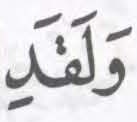 وَلَقَدِ